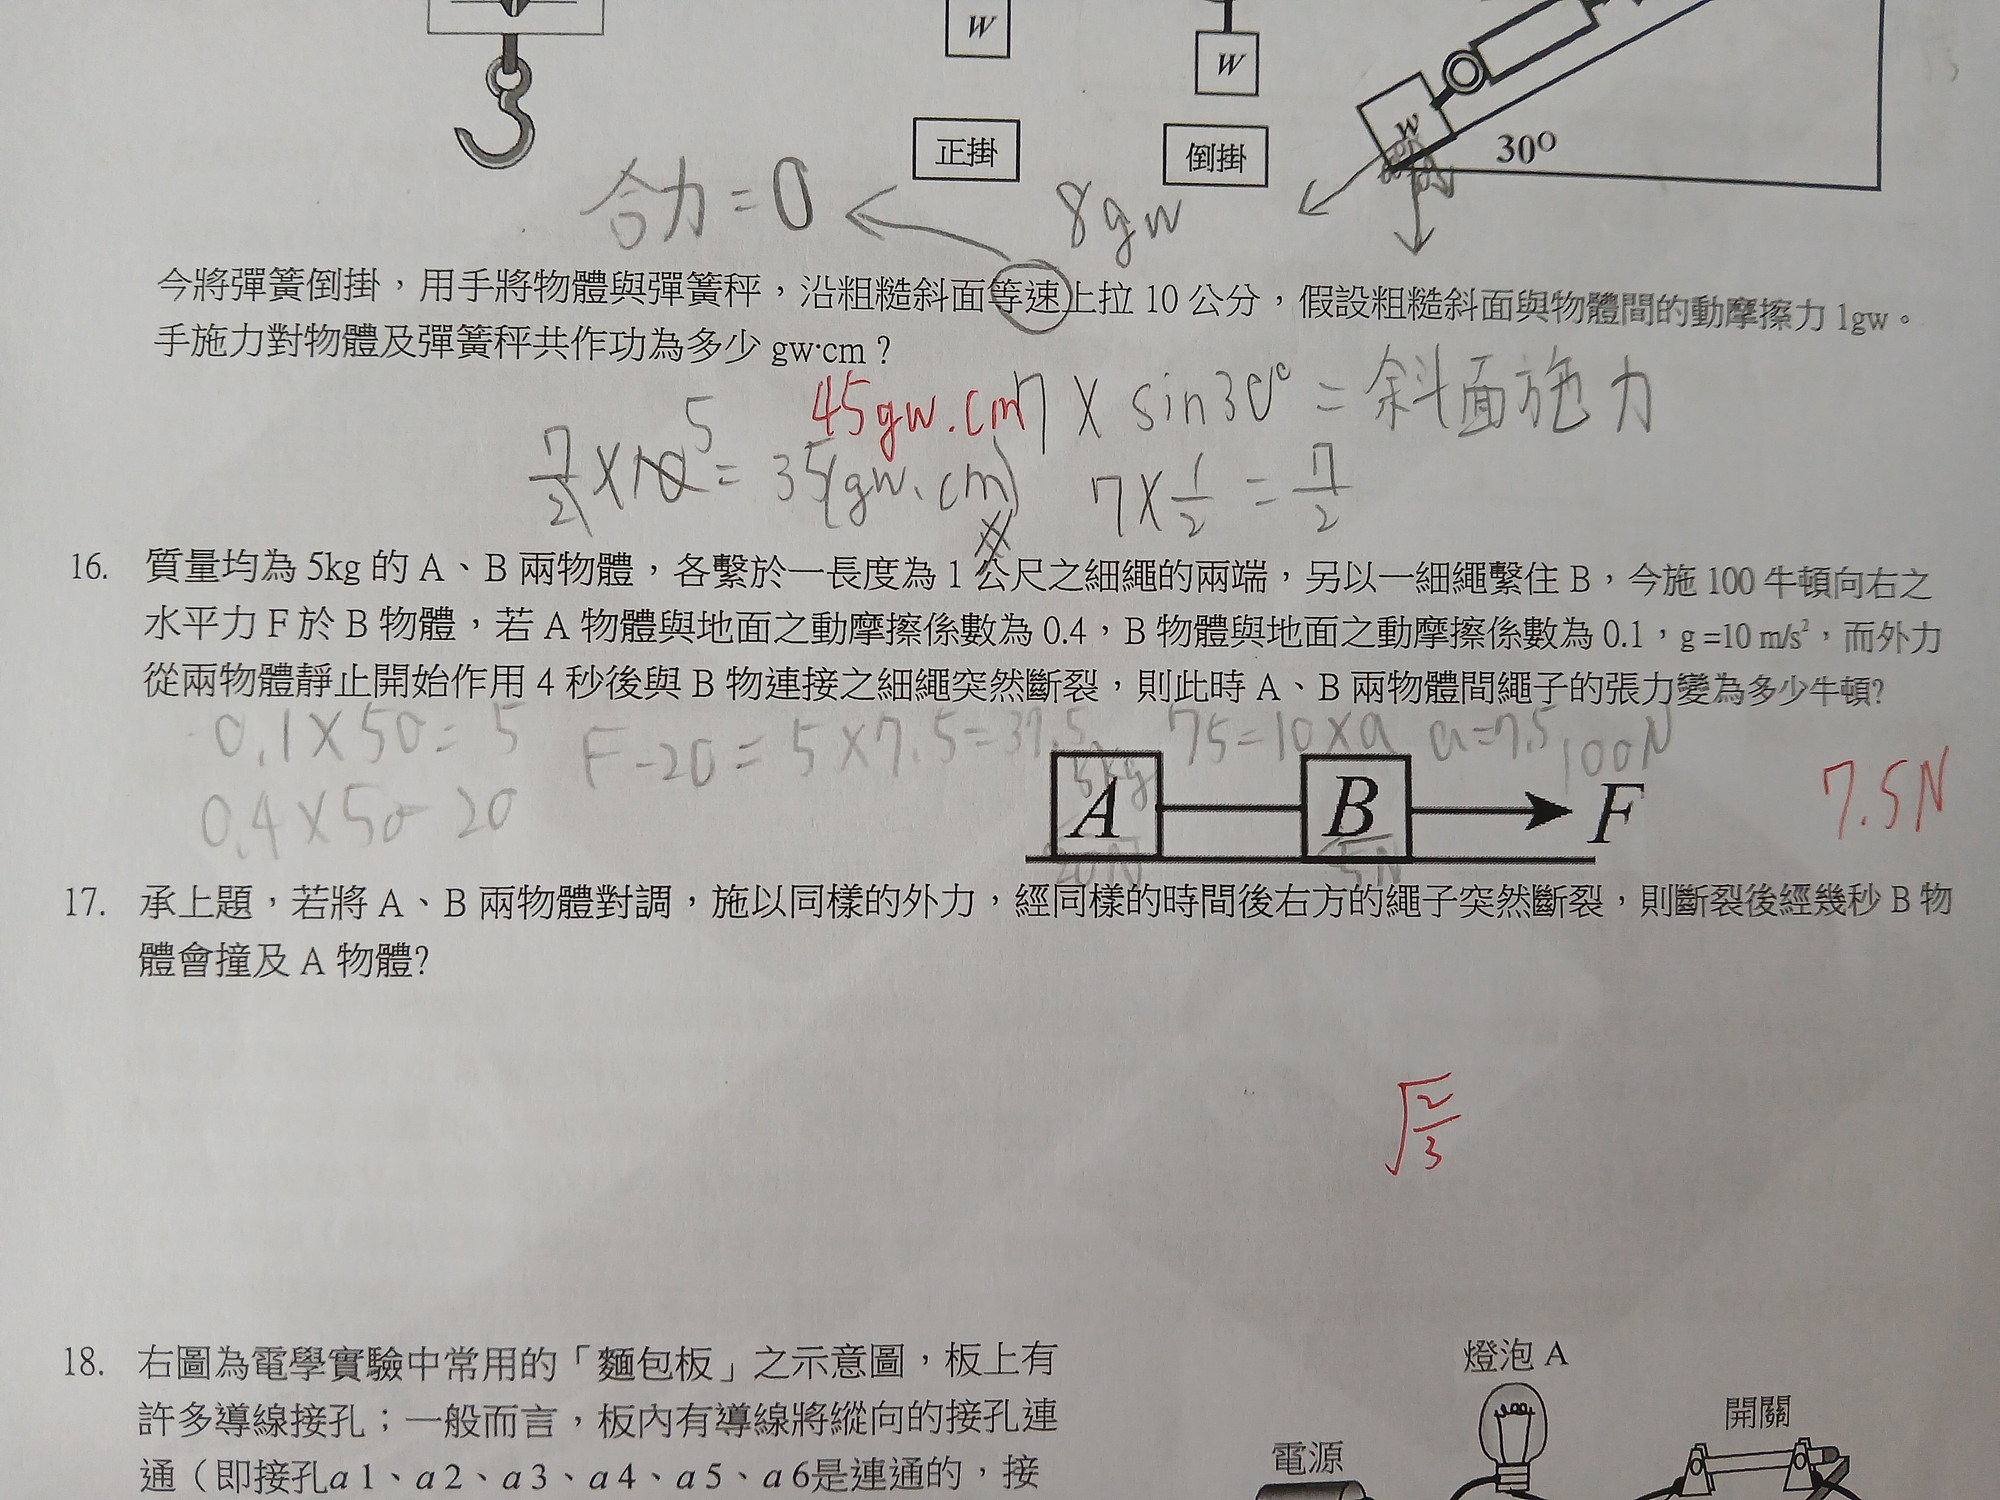 W
W
W
正掛
倒掛
30°
合力=0
8gw
今將彈簧倒掛，用手將物體與彈簧秤，沿粗糙斜面等速上拉 10 公分，假設粗糙斜面與物體間的動摩擦力 1gw。
手施力對物體及彈簧秤共作功為多少 gw·cm？
45gw.cm
7 × sin30° = 斜面施力
7/2 × 10 5 = 35(gw.cm)
7×1/2 = 7/2
16. 質量均為 5kg 的 A、B 兩物體，各繫於一長度為 1 公尺之細繩的兩端，另以一細繩繫住 B，今施 100 牛頓向右之
水平力 F 於 B 物體，若 A 物體與地面之動摩擦係數為 0.4，B 物體與地面之動摩擦係數為 0.1，g =10 m/s²，而外力
從兩物體靜止開始作用 4 秒後與 B 物連接之細繩突然斷裂，則此時 A、B 兩物體間繩子的張力變為多少牛頓?
0.1×50=5
F-20=5×7.5=37.5
75=10×a
a=7.5
100N
0.4×50=20
5kg
A
B
F
20N
5N
7.5N
17. 承上題，若將 A、B 兩物體對調，施以同樣的外力，經同樣的時間後右方的繩子突然斷裂，則斷裂後經幾秒 B 物
體會撞及 A 物體?
√2/3
18. 右圖為電學實驗中常用的「麵包板」之示意圖，板上有
許多導線接孔；一般而言，板內有導線將縱向的接孔連
通（即接孔a 1、a 2、a 3、a 4、a 5、a 6是連通的，接
燈泡 A
開關
電源